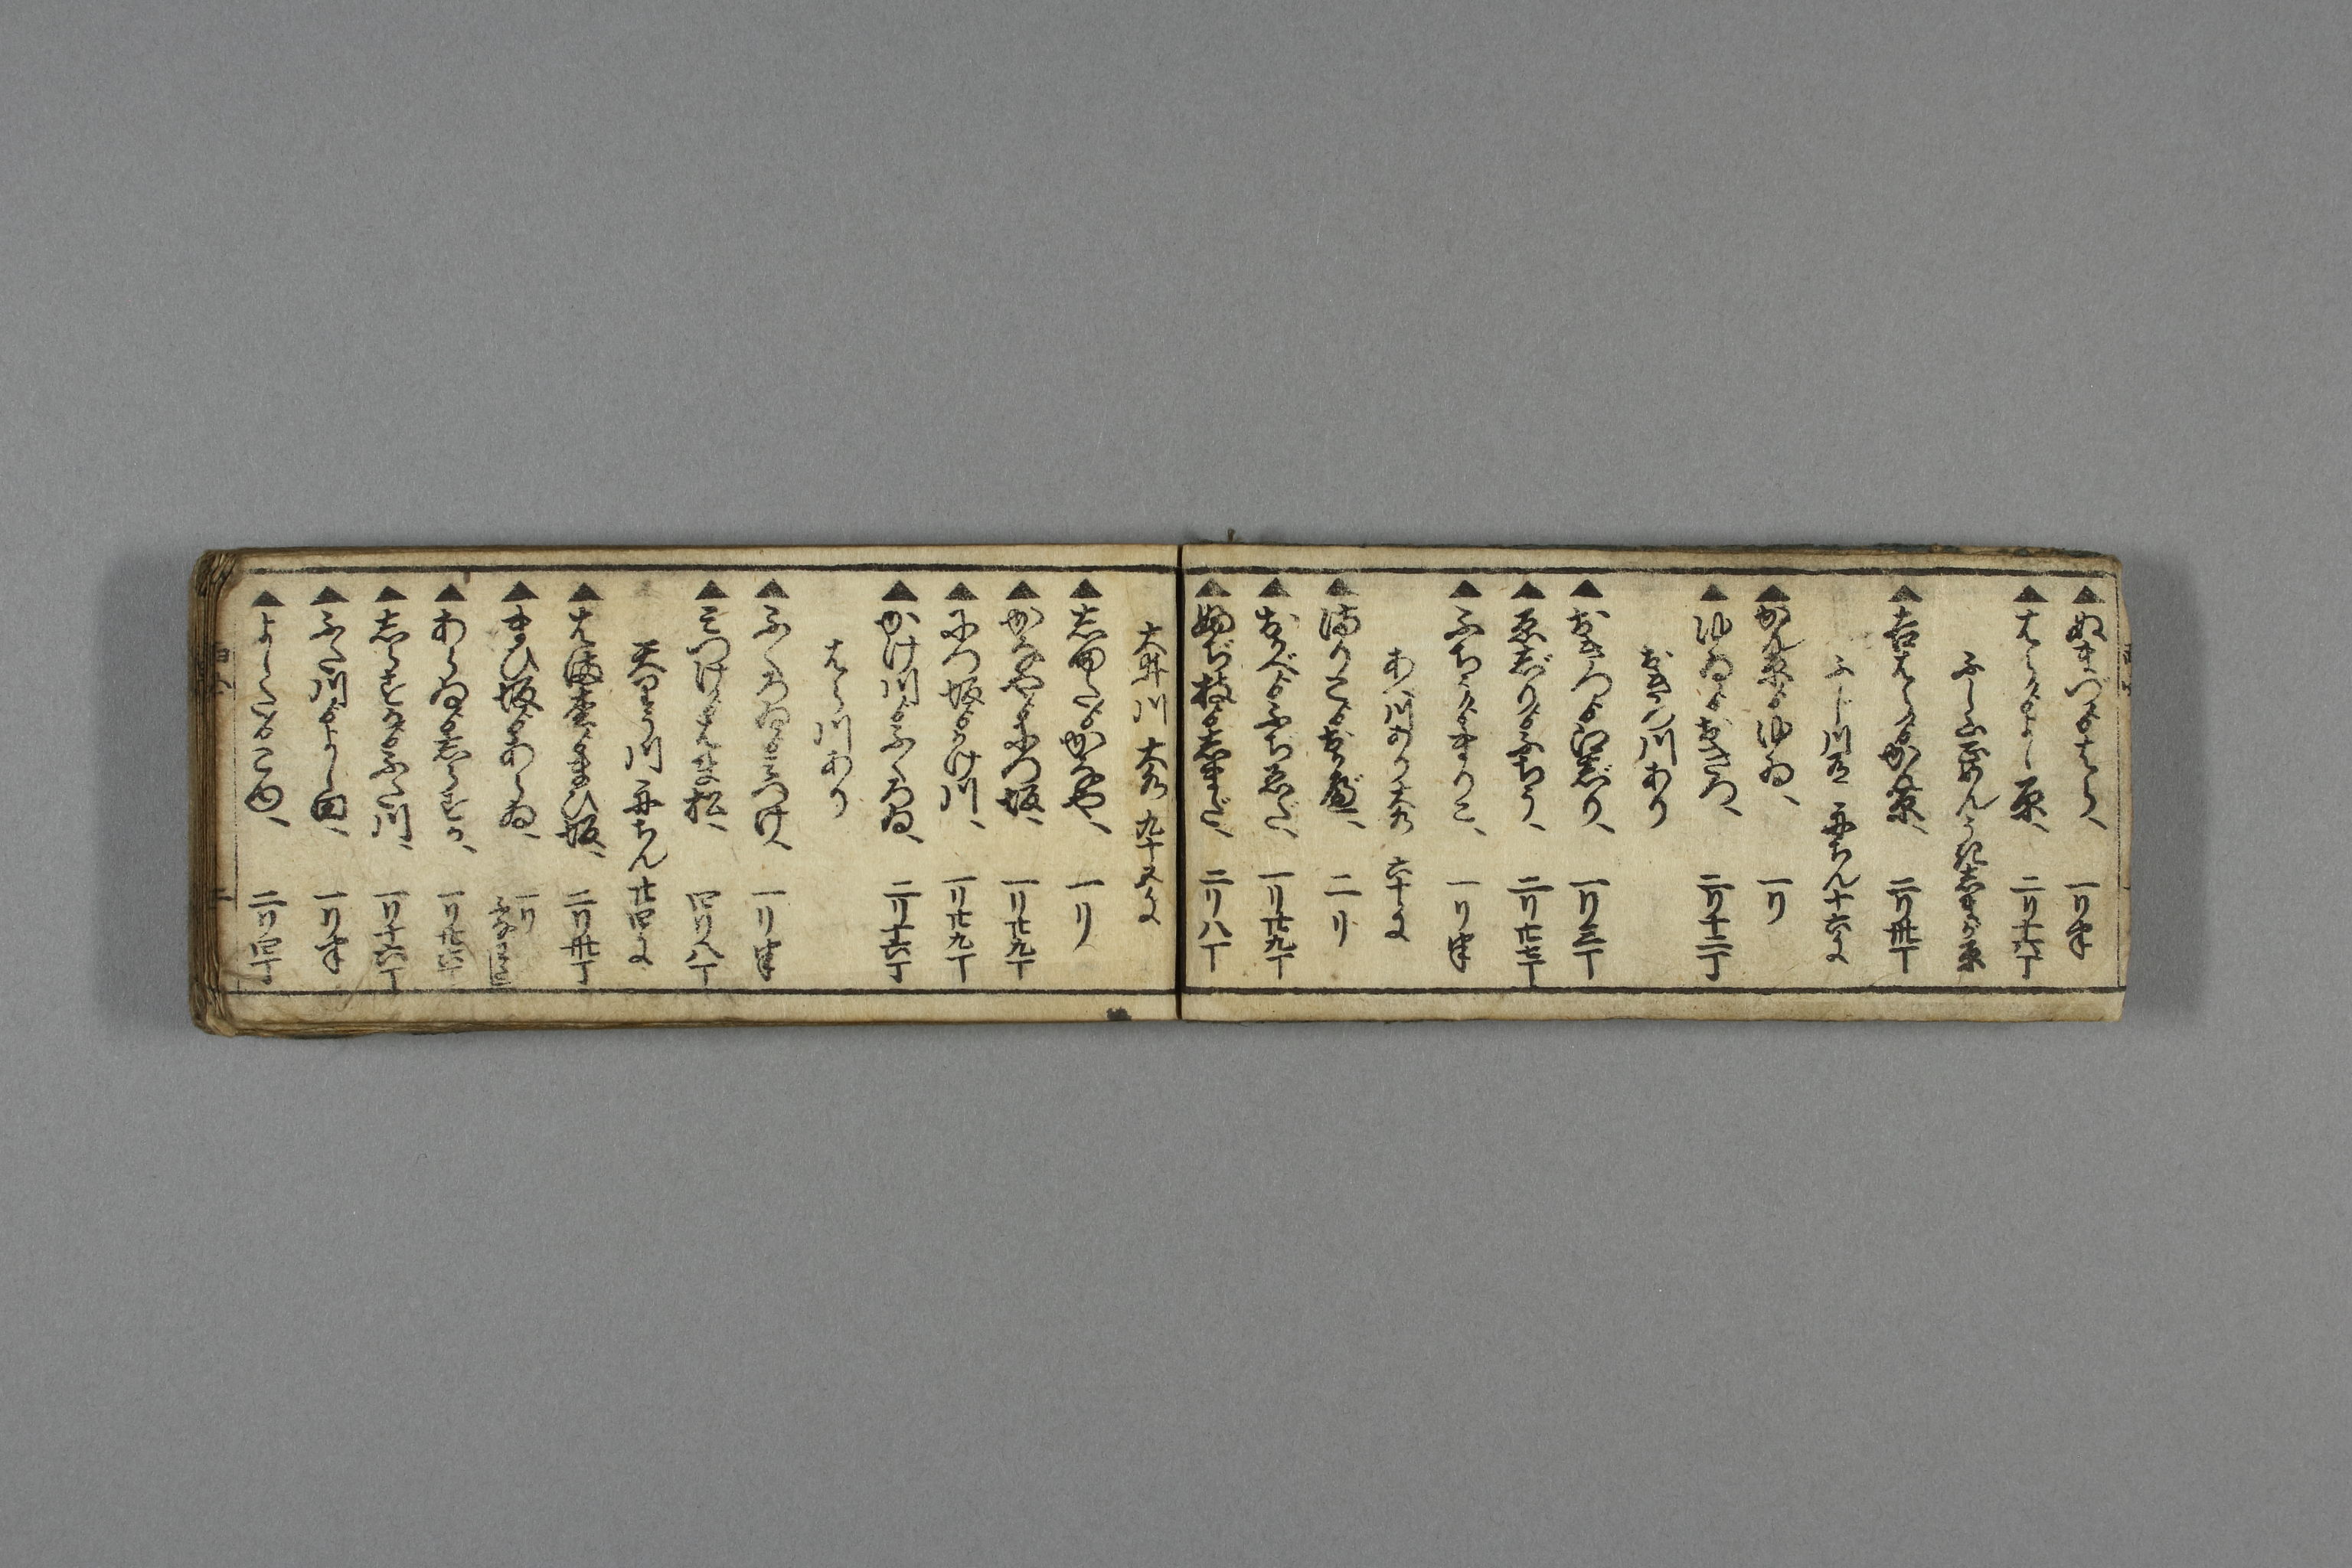 ▲ぬまづゟはら、 一リ半
▲はらゟよし原、 二リ十六丁
▲吉はらゟかん原、 二リ卅丁
ふじ川有 舟ちん十六文
▲かん原ゟゆゐ、 一リ
▲ゆゐゟおきつ、 二リ十二丁
おきつ川あり
▲おきつゟ江尻り、 一リ三丁
▲ゑじりゟふちう、 二リ廿七丁
▲ふちうゟまりこ、 一リ半
あべ川あり 六十文
▲まりこゟおかべ、 二リ
▲おかべゟふぢゑだ、 一リ廿九丁
▲ふぢ枝ゟしまだ、 二リ八丁
大井川 大水 九十五文
▲志まだゟかなや、 一リ
▲かなやゟにつ坂、 一リ廿九丁
▲につ坂ゟかけ川、 一リ廿九丁
▲かけ川ゟふくろゐ、 二リ十六丁
はら川あり
▲ふくろゐゟみつけ、 一リ半
▲みつけゟはま松、 四リ八丁
天りう川 舟ちん 廿四文
▲はま松ゟまひ坂、 二リ卅丁
▲まひ坂ゟあらゐ、 一リ
▲あらゐゟしらすか、 一リ廿六丁
▲しらすかゟふた川、 一リ十六丁
▲ふた川ゟよし田、 一リ半
▲よしだゟごゆ、 二リ四丁